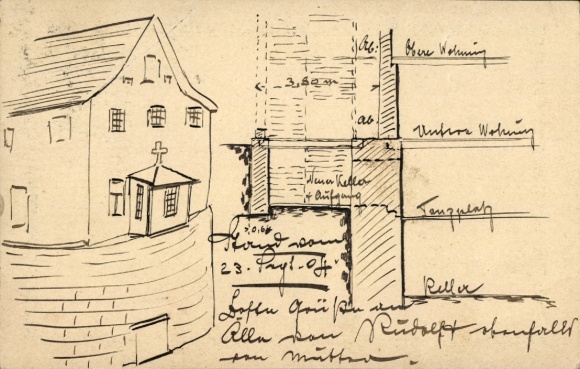 ab:
Obere Wohnung
3,80 m
ab:
Untere Wohnung
Neuer Keller
+ Aufgang
Tanzplatz
: 0,64
Stand vom
23. Sept. 04
Keller
Beste Grüße an
Alle von Rudolf + ebenfalls
von Mutter.